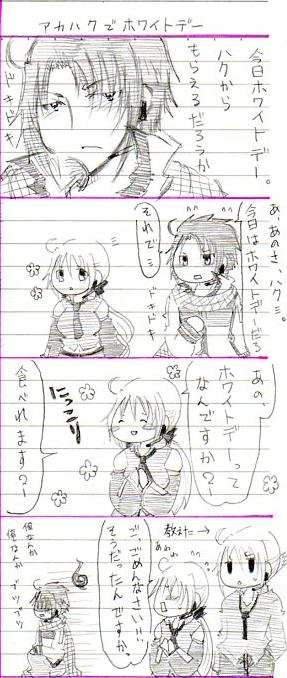 アカハクでホワイトデー
今日ホワイトデー。
ハクから
もらえるだろうか
ドキドキ
あ、あのさ、ハク…。
今日はホワイトデーだろ
それで…
ドキドキ
あの、
ホワイトデーって
なんですか?
にっこり
食べれます?
教えた→
あわわ
ご、ごめんなさい!!
そうだったんですか。
俺なんか
俺なんか
ブツブツ